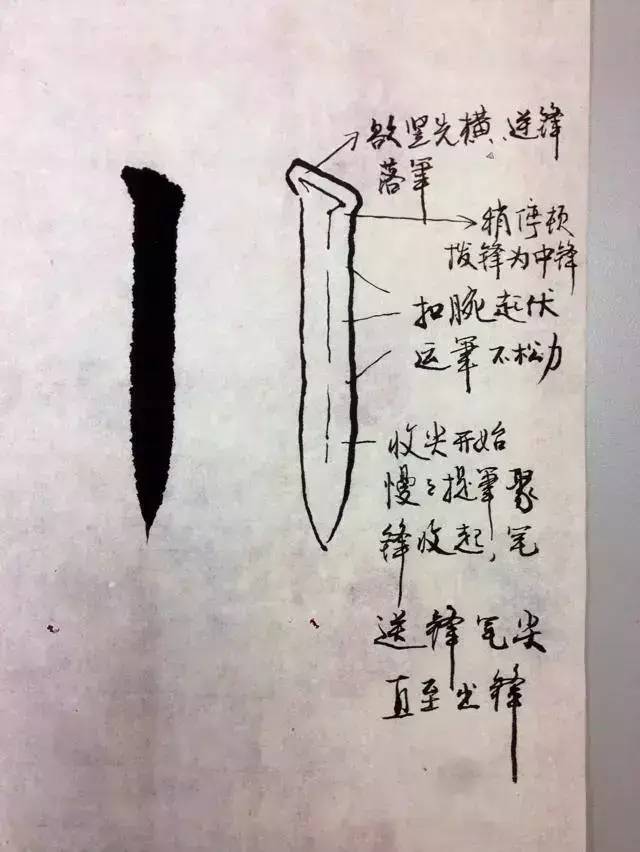 欲竖先横、逆锋
落笔
稍停顿
拨锋为中锋
扣腕起伏
运笔不松力
收尖开始
慢慢提笔聚
锋收起,笔
送锋笔尖
直至出锋